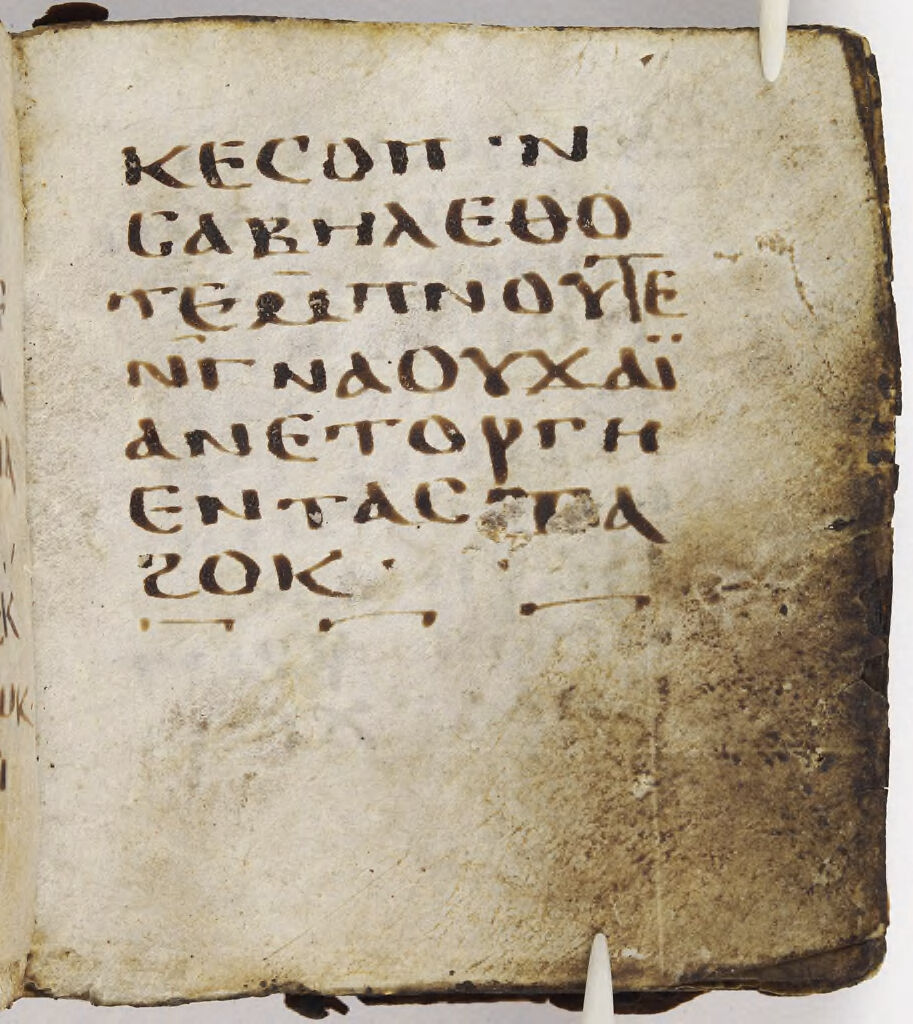 ⲕⲉⲥⲟⲡ · ⲛ
ⲥⲁⲃⲏⲗⲉⲑⲟ
ⲧⲉⲙ̄ⲡⲛⲟⲩⲧⲉ
ⲛ̄ⲅⲛⲁⲟⲩϫⲁⲓ̈
ⲁⲛⲉⲧⲟⲣⲅⲏ
ⲉⲛⲧⲁⲥⲧⲁ
ϩⲟⲕ ·